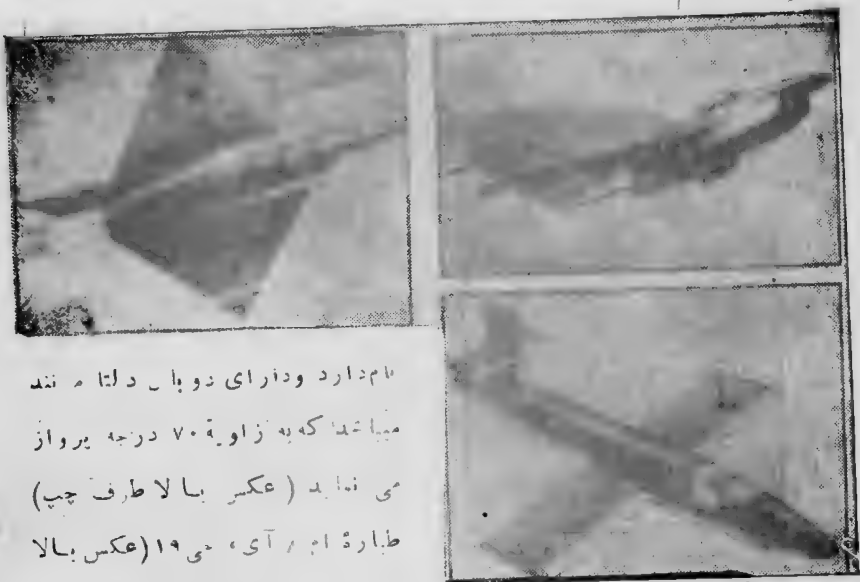 نام دارد ودارای دو بال دلتا مانند
میباشد که به زاویهٔ ۷۰ درجه پرواز
می نماید (عکس بالا طرف چپ)
طیارهٔ ام، آی، جی ۱۹ (عکس بالا